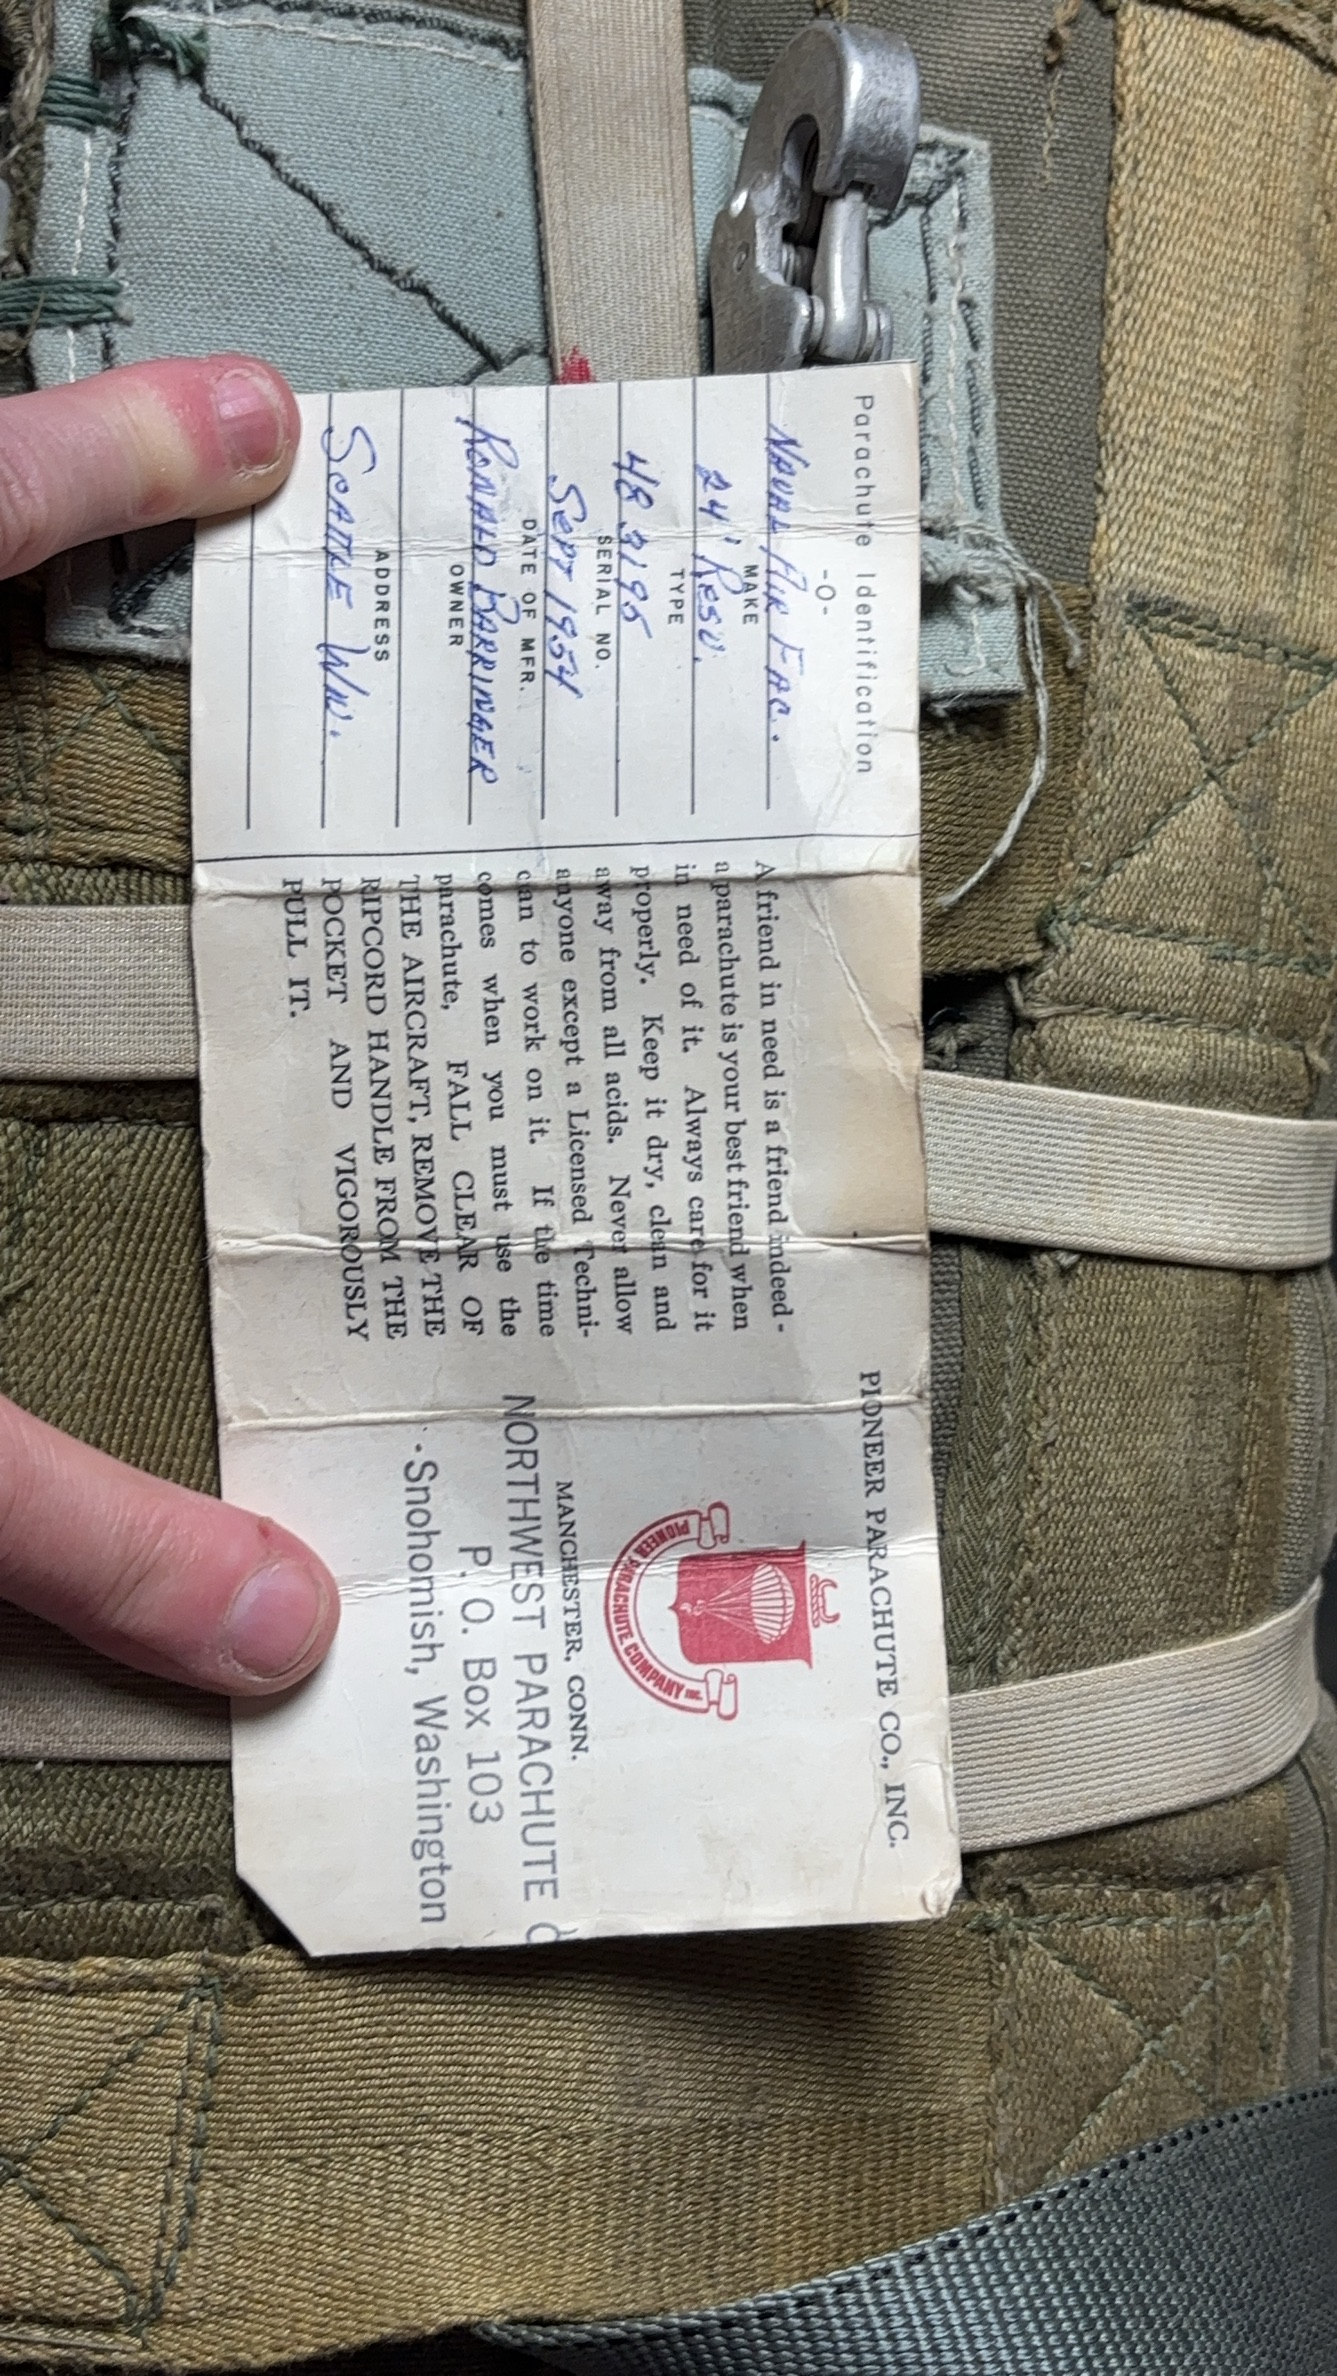 Parachute Identification
-O-
NAVAL AIR FAC.
MAKE
24' RESV.
TYPE
48 3195
SERIAL NO.
SEPT 1954
DATE OF MFR.
RONALD BARRINGER
OWNER
ADDRESS
SEATTLE WN.
A friend in need is a friend indeed -
a parachute is your best friend when
in need of it. Always care for it
properly. Keep it dry, clean and
away from all acids. Never allow
anyone except a Licensed Techni-
can to work on it. If the time
comes when you must use the
parachute, FALL CLEAR OF
THE AIRCRAFT, REMOVE THE
RIPCORD HANDLE FROM THE
POCKET AND VIGOROUSLY
PULL IT.
PIONEER PARACHUTE CO., INC.
PIONEER PARACHUTE COMPANY INC.
MANCHESTER, CONN.
NORTHWEST PARACHUTE
P. O. Box 103
Snohomish, Washington